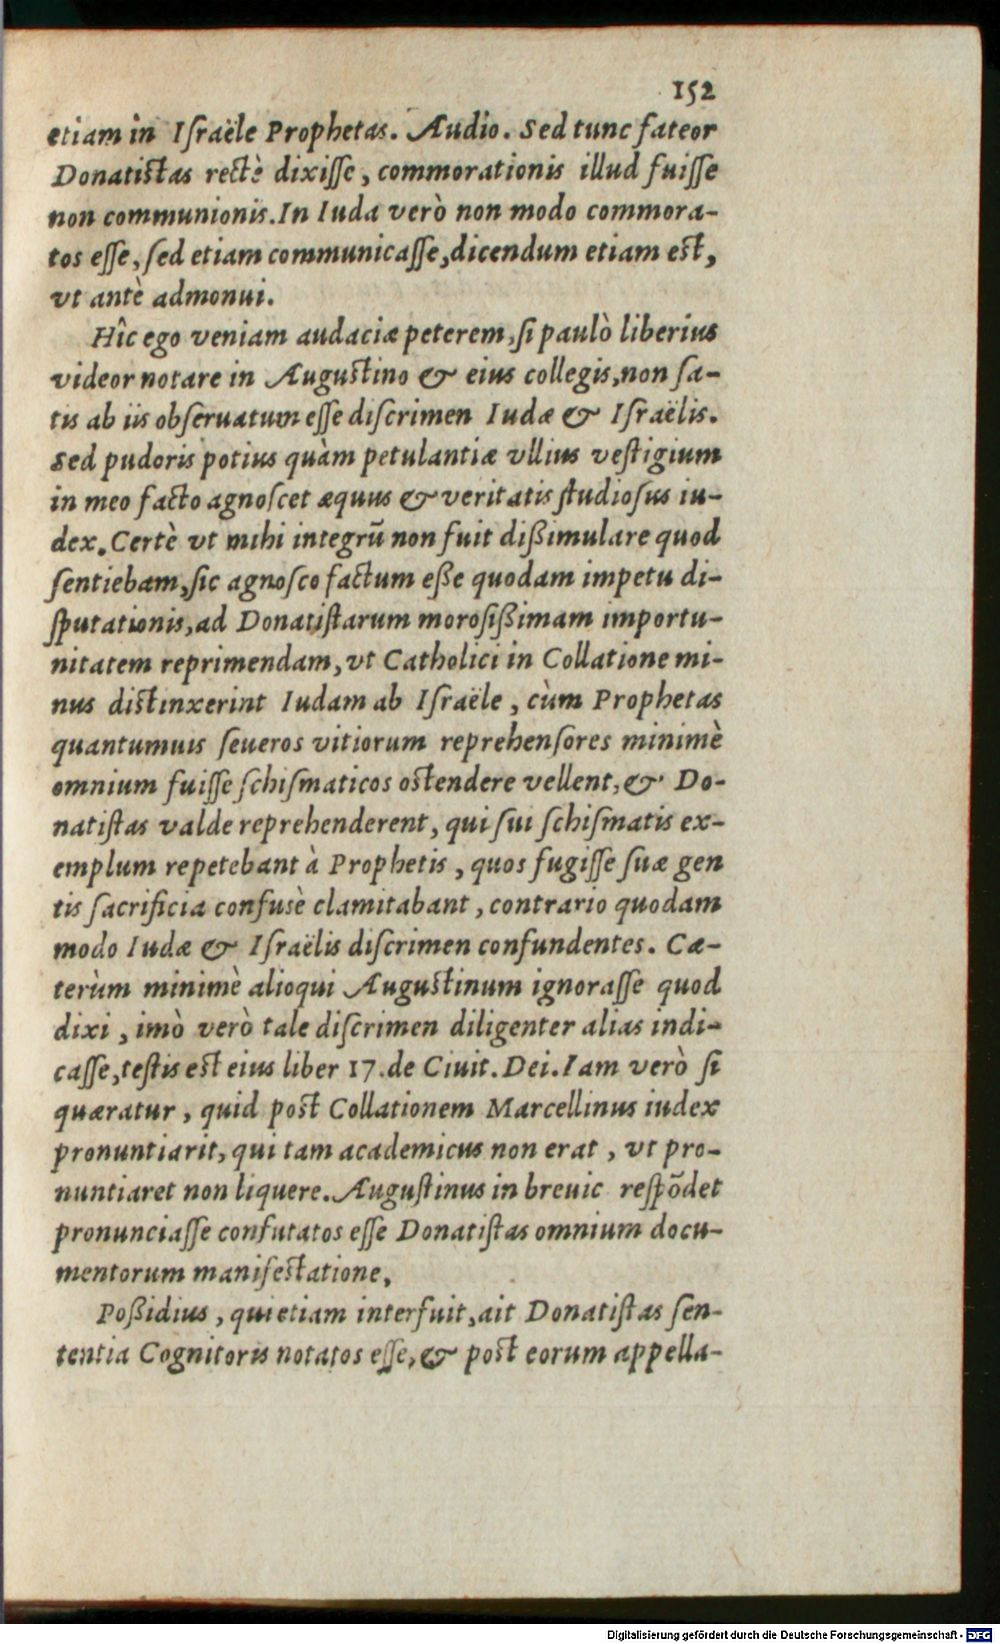 152
etiam in Iſraële Prophetas. Audio. Sed tunc fateor
Donatiſtas rectè dixiſſe, commorationis illud fuiſſe
non communionis. In Iuda verò non modo commora-
tos eſſe, ſed etiam communicaſſe, dicendum etiam eſt,
vt antè admonui.
Hîc ego veniam audaciæ peterem, ſi paulò liberius
videor notare in Auguſtino & eius collegis, non ſa-
tis ab iis obſeruatum eſſe diſcrimen Iudæ & Iſraëlis.
Sed pudoris potius quàm petulantiæ vllius veſtigium
in meo facto agnoſcet æquus & veritatis ſtudioſus iu-
dex. Certè vt mihi integrū non fuit dißimulare quod
ſentiebam, ſic agnoſco factum eße quodam impetu di-
ſputationis, ad Donatiſtarum moroſißimam importu-
nitatem reprimendam, vt Catholici in Collatione mi-
nus diſtinxerint Iudam ab Iſraële, cùm Prophetas
quantumuis ſeueros vitiorum reprehenſores minimè
omnium fuiſſe ſchiſmaticos oſtendere vellent, & Do-
natiſtas valde reprehenderent, qui ſui ſchiſmatis ex-
emplum repetebant à Prophetis, quos fugiſſe ſuæ gen
tis ſacrificia confuſè clamitabant, contrario quodam
modo Iudæ & Iſraëlis diſcrimen confundentes. Cæ-
terùm minimè alioqui Auguſtinum ignoraſſe quod
dixi, imò verò tale diſcrimen diligenter alias indi-
caſſe, teſtis eſt eius liber 17. de Ciuit. Dei. Iam verò ſi
quæratur, quid poſt Collationem Marcellinus iudex
pronuntiarit, qui tam academicus non erat, vt pro-
nuntiaret non liquere. Auguſtinus in breuic reſpōdet
pronunciaſſe confutatos eſſe Donatiſtas omnium docu-
mentorum manifeſtatione,
Poßidius, qui etiam interfuit, ait Donatiſtas ſen-
tentia Cognitoris notatos eſſe, & poſt eorum appella-
Digitalisierung gefördert durch die Deutsche Forschungsgemeinschaft - DFG